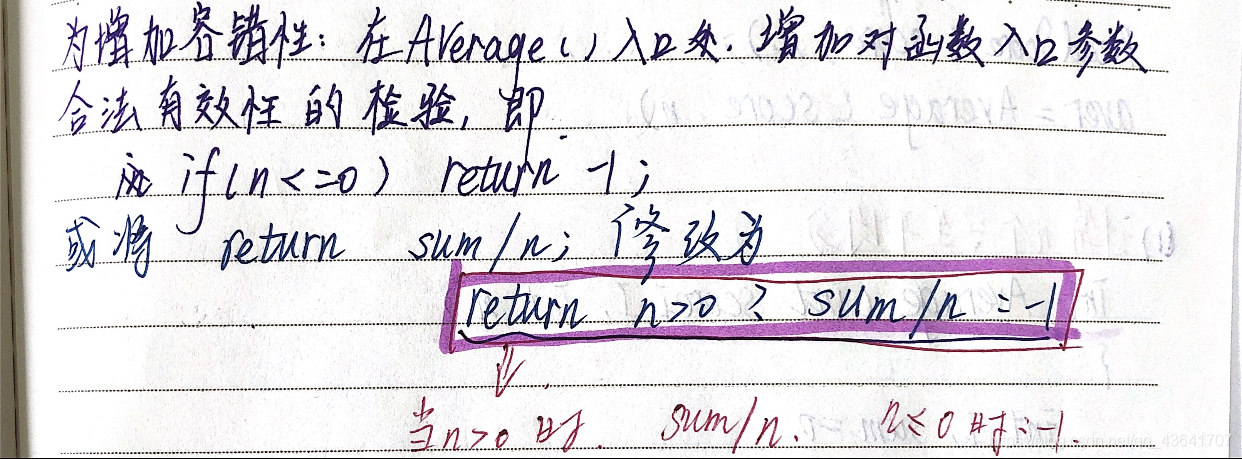 为增加容错性: 在Average()入口处. 增加对函数入口参数
合法有效性的检验, 即.
if(n<=0) return -1;
或将 return sum/n; 修改为
return n>0 ? sum/n :-1
当n>0时. sum/n. n≤0时:-1.